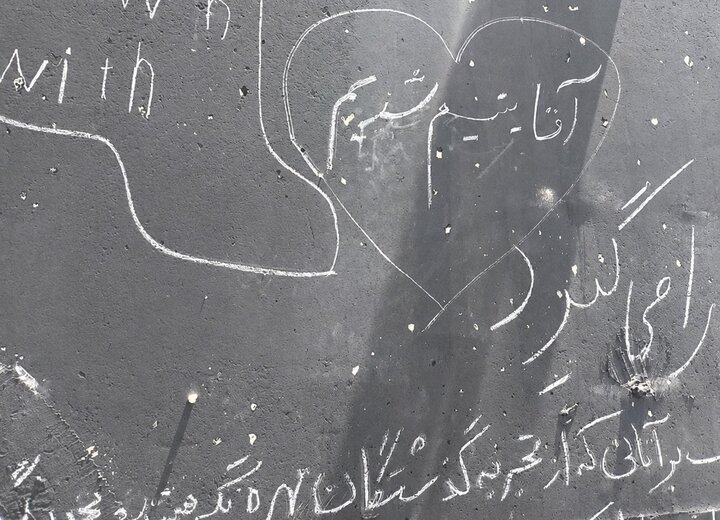 with
آقا یتیم شدیم
را می گیرد
بر آنانی که از تجربه گذشتگان بهره نگرفتند